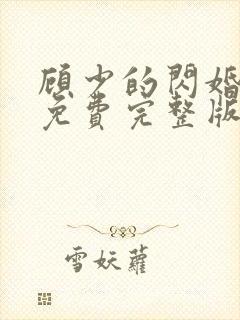 顧少的閃婚
免費完整版
雪妖蘿